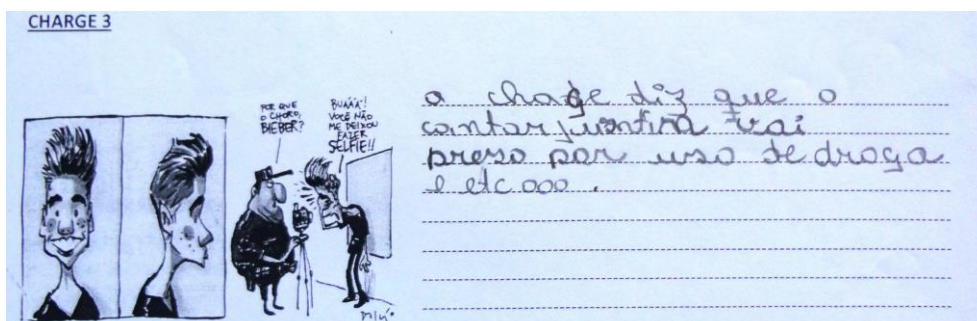 CHARGE 3
POR QUE
O CHORO,
BIEBER?
BUÁÁÁ!
VOCÊ NÃO
ME DEIXOU
FAZER
SELFIE!!
a charge diz que o
cantor vai
preso por uso de droga
e etc ooo .